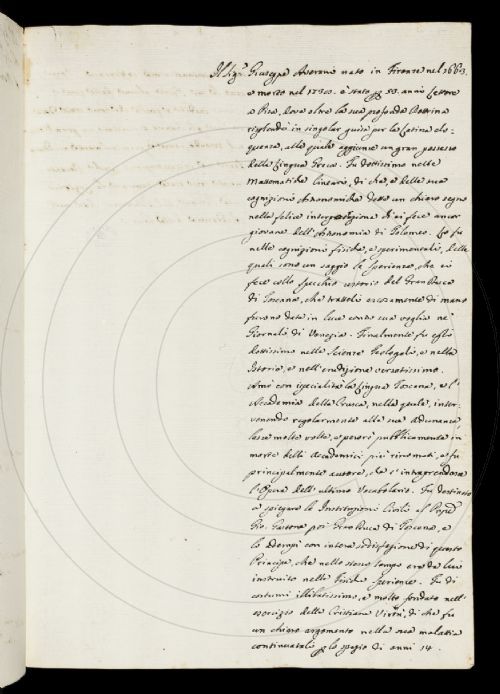 Il Sig.r Giuseppe Averani nato in Firenze nel 1663.
e morto nel 17 è stato p 53. anni Lettore
a Pisa, dove oltre la sua profonda Dottrina
risplendè in singolar guisa per la Latina elo-
quenza, alla quale aggiunse un gran possesso
della Lingua Greca. Fu dottissimo nelle
Matematiche lineari, di che, e delle sue
cognizioni Astronomiche dette un chiaro segno
nella felice interpretazione ch'ei fece ancor
giovane dell'Astronomia di Tolomeo. Lo fu
nelle cognizioni fisiche, e sperimentali, delle
quali sono un saggio le sperienze, che ei
fece collo specchio ustorio del Gran Duca
di Toscana, che trattoli ascosamente di mano
furono date in luce contro sua voglia ne'
Giornali di Venezia. Finalmente fu egli
dottissimo nelle Scienze Teologali, e nella
Istoria, e nell'erudizione versatissimo.
Amò con specialità la Lingua Toscana, e l'
Accademia della Crusca, nella quale, inter-
venendo regolarmente alle sue Adunanze,
lesse molte volte, e perorò pubblicamente in
morte delli Accademici più rinomati, e fu
principalmente autore, che s'intraprendesse
l'Opera dell'ultimo Vocabolario. Fu destinato
a spiegare le Instituzioni Civili al Pnpe
Gio: Gastone poi Gran Duca di Toscana, e
lo adempì con intera sodisfazione di questo
Principe, che nello stesso tempo era da lui
instruito nelle Fisiche sperienze. Fu di
costumi illibatissimo, e molto fondato nell'
esercizio delle Cristiane Virtù, di che fu
un chiaro argomento nella sua malattia
continuatali p lo spazio di anni 14.